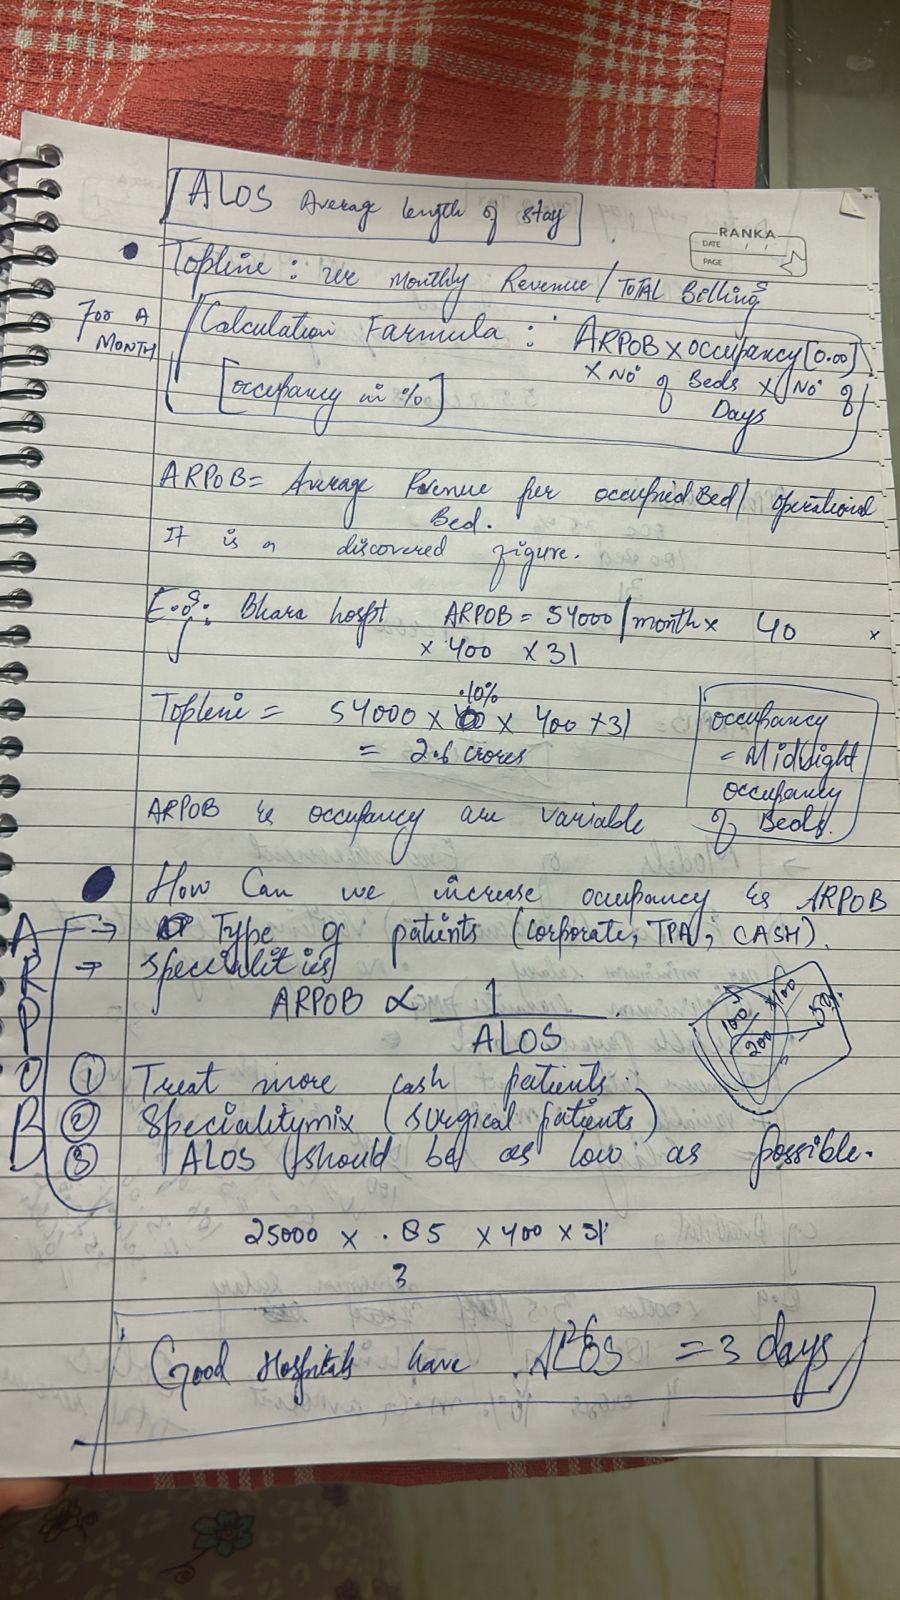 ALOS Average length of stay
RANKA
DATE / /
PAGE
Topline : Monthly Revenue / TOTAL Billings
For A
MONTH
Calculation Farmula : ARPOB x occupancy [0.00]
x No of Beds x No of
Days
[occupancy in %]
ARPOB = Average Revenue per occupied Bed / operational
Bed.
It is a discovered figure.
E.g: hospt ARPOB = 54000 / month x 40 x
x 400 x 31
.10%
Topline = 54000 x x 400 x 31
= 2.6 crores
occupancy
= Midnight
occupancy
of Beds.
ARPOB & occupancy are variable
How Can we increase occupancy & ARPOB
→ Type of patients (corporate, TPA, CASH).
→ specialities
ARPOB ∝ 1
ALOS
100 x 100
200
= 50%
ARPOB
① Treat more cash patients.
② Specialitymix (surgical patients)
③ ALOS should be as low as possible.
25000 x .85 x 400 x 31
3
Good Hospitals have ALOS = 3 days